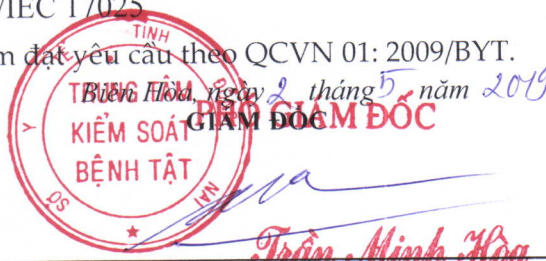 /IEC 17025
đạt yêu cầu theo QCVN 01: 2009/BYT.
Biên Hòa, ngày 2 tháng 5 năm 2019
PHÓ GIÁM ĐỐC
GIÁM ĐỐC
SỞ Y TẾ TỈNH ĐỒNG NAI
TRUNG TÂM
KIỂM SOÁT
BỆNH TẬT
Trần Minh Hòa